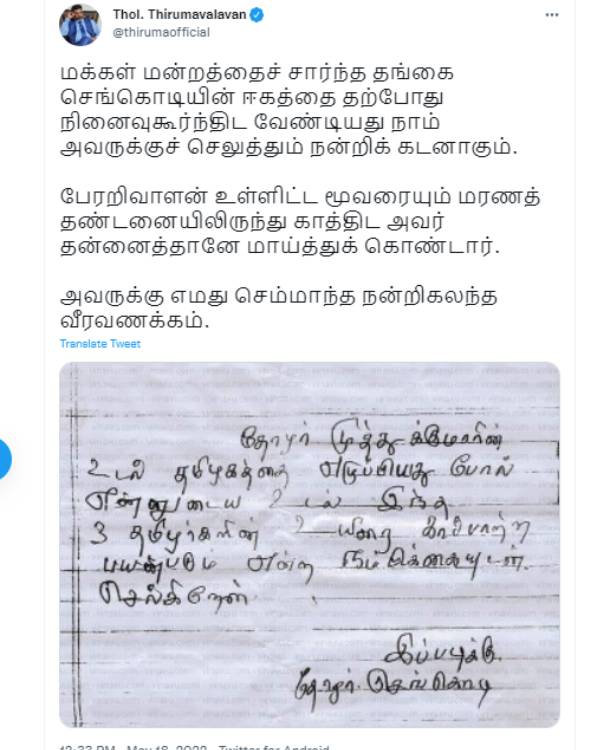 Thol. Thirumavalavan
@thirumaofficial
மக்கள் மன்றத்தைச் சார்ந்த தங்கை
செங்கொடியின் ஈகத்தை தற்போது
நினைவுகூர்ந்திட வேண்டியது நாம்
அவருக்குச் செலுத்தும் நன்றிக் கடனாகும்.
பேரறிவாளன் உள்ளிட்ட மூவரையும் மரணத்
தண்டனையிலிருந்து காத்திட அவர்
தன்னைத்தானே மாய்த்துக் கொண்டார்.
அவருக்கு எமது செம்மாந்த நன்றிகலந்த
வீரவணக்கம்.
Translate Tweet
தோழர் முத்துக்குமாரின்
உடல் தமிழகத்தை எழுப்பியது போல்
என்னுடைய உடல் இந்த
3 தமிழர்களின் உயிரை காப்பாற்ற
பயன்படும் என்ற நம்பிக்கையுடன்
செல்கிறேன்
இப்படிக்கு
தோழர். செங்கொடி
12:33 PM · May 18, 2022 · Twitter for Android